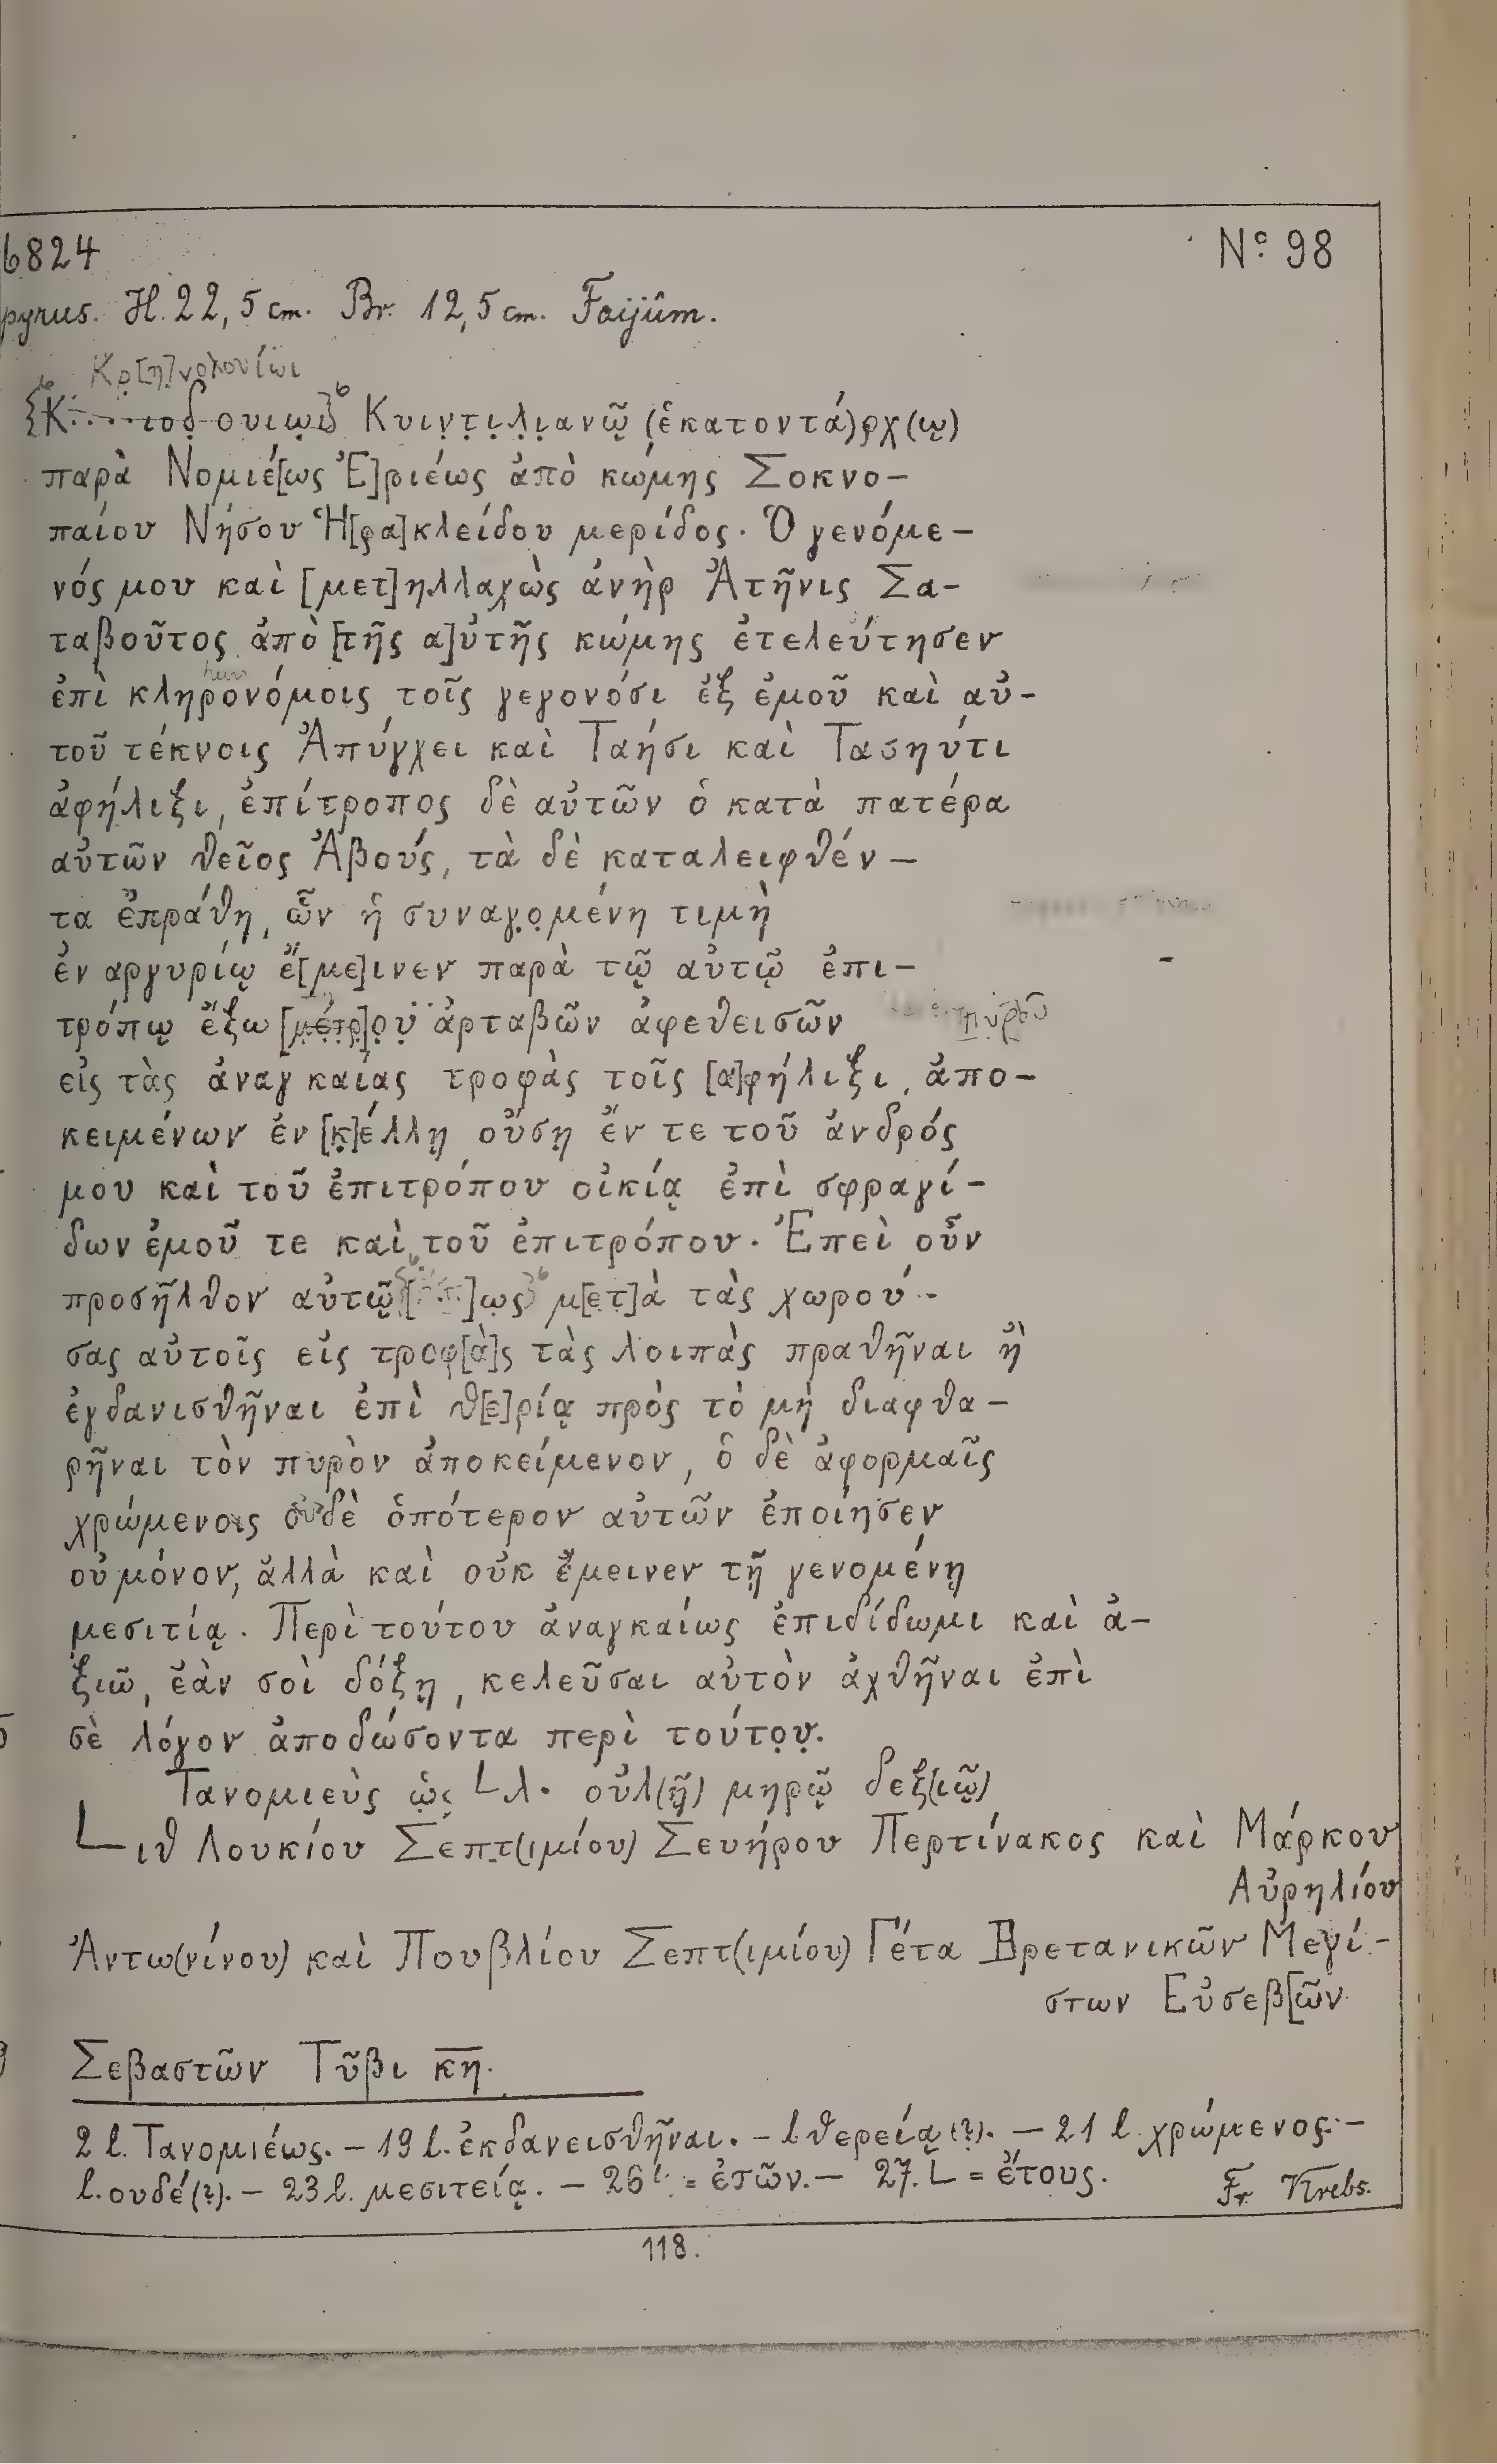 6824 Nº 98
pyrus. H. 22,5 cm. Br. 12,5 cm. Faijûm.
ουιωι Κυιντιλιανῷ (ἑκατοντά)ρχ(ῳ)
παρὰ Νομιέ[ως Ἐ]ριέως ἀπὸ κώμης Σοκνο-
παίου Νήσου Ἡ[ρα]κλείδου μερίδος. Ὁ γενόμε-
νός μου καὶ [μετ]ηλλαχὼς ἀνὴρ Ἀτῆνις Σα-
ταβοῦτος ἀπὸ [τῆς α]ὐτῆς κώμης ἐτελεύτησεν
ἐπὶ κληρονόμοις τοῖς γεγονόσι ἐξ ἐμοῦ καὶ αὐ-
τοῦ τέκνοις Ἀπύγχει καὶ Ταήσι καὶ Τασηύτι
ἀφήλιξι, ἐπίτροπος δὲ αὐτῶν ὁ κατὰ πατέρα
αὐτῶν θεῖος Ἀβούς, τὰ δὲ καταλειφθέν-
τα ἐπράθη, ὧν ἡ συναγομένη τιμὴ
ἐν αργυρίῳ ἔ[με]ινεν παρὰ τῷ αὐτῷ ἐπι-
τρόπῳ ἔξω [μέτρ]ου ἀρταβῶν ἀφεθεισῶν πυροῦ
εἰς τὰς ἀναγκαίας τροφὰς τοῖς [α]φήλιξι, ἀπο-
κειμένων ἐν [κ]έλλῃ οὔσῃ ἔν τε τοῦ ἀνδρός
μου καὶ τοῦ ἐπιτρόπου οἰκίᾳ ἐπὶ σφραγί-
δων ἐμοῦ τε καὶ τοῦ ἐπιτρόπου. Ἐπεὶ οὖν
προσῆλθον αὐτῷ [...]ως μ[ετ]ὰ τὰς χωρού-
σας αὐτοῖς εἰς τροφ[ὰ]ς τὰς λοιπὰς πραθῆναι ἢ
ἐγδανισθῆναι ἐπὶ θ[ε]ρίᾳ πρὸς τὸ μὴ διαφθα-
ρῆναι τὸν πυρὸν ἀποκείμενον, ὁ δὲ ἀφορμαῖς
χρώμενοις οὐδὲ ὁπότερον αὐτῶν ἐποίησεν
οὐ μόνον, ἀλλὰ καὶ οὐκ ἔμεινεν τῇ γενομένῃ
μεσιτίᾳ. Περὶ τούτου ἀναγκαίως ἐπιδίδωμι καὶ ἀ-
ξιῶ, ἐάν σοὶ δόξῃ, κελεῦσαι αὐτὸν ἀχθῆναι ἐπὶ
σὲ λόγον ἀποδώσοντα περὶ τούτου.
Τανομιεὺς ὡς Lλ. οὐλ(ῇ) μηρῷ δεξ(ιῷ)
Lιθ Λουκίου Σεπτ(ιμίου) Σευήρου Περτίνακος καὶ Μάρκου
Αὐρηλίου
Ἀντω(νίνου) καὶ Πουβλίου Σεπτ(ιμίου) Γέτα Βρετανικῶν Μεγί-
στων Εὐσεβ[ῶν
Σεβαστῶν Τῦβι κη.
2 l. Τανομιέως. – 19 l. ἐκδανεισθῆναι. – l θερείᾳ(?). – 21 l. χρώμενος. –
l. ουδέ(?). – 23 l. μεσιτείᾳ. – 26 L = ἐτῶν. – 27. L = ἔτους. Fr. Krebs.
118.